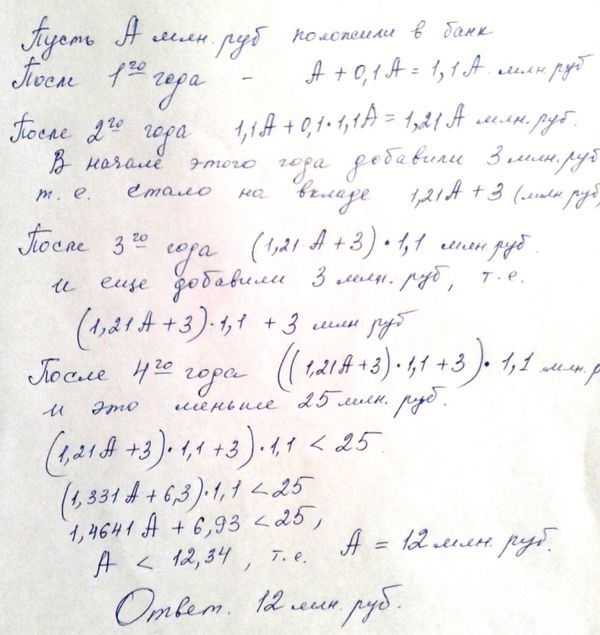 Пусть A млн. руб положили в банк
После 1го года - A + 0,1A = 1,1A млн. руб
После 2го года 1,1A + 0,1·1,1A = 1,21A млн. руб.
В начале этого года добавили 3 млн. руб
т. е. стало на вкладе 1,21A + 3 (млн руб)
После 3го года (1,21A + 3)·1,1 млн. руб.
и еще добавили 3 млн. руб, т. е.
(1,21A + 3)·1,1 + 3 млн. руб
После 4го года ((1,21A + 3)·1,1 + 3)·1,1 млн. р
и это меньше 25 млн. руб.
(1,21A + 3)·1,1 + 3)·1,1 < 25
(1,331A + 6,3)·1,1 < 25
1,4641A + 6,93 < 25,
A < 12,34, т. е. A = 12 млн. руб.
Ответ. 12 млн. руб.